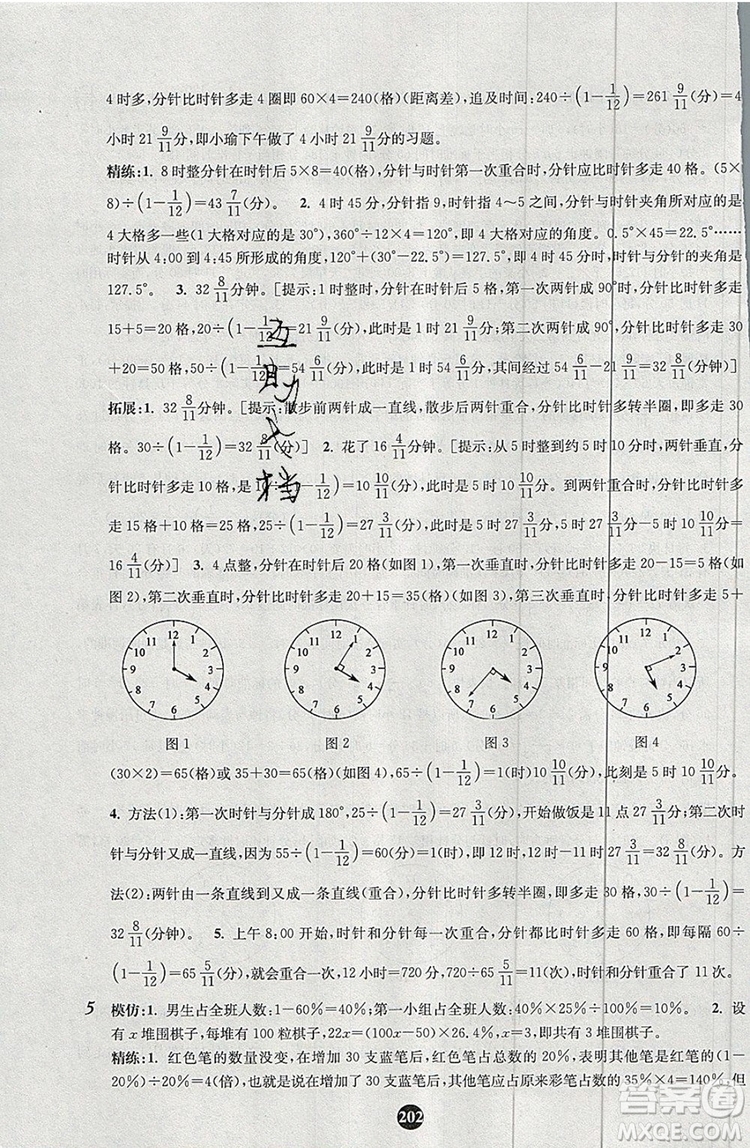 4 时多,分针比时针多走 4 圈即 60×4=240(格)(距离差),追及时间:240÷(1-1/12)=261 9/11(分)=4
小时 21 9/11分,即小瑜下午做了 4 小时 21 9/11分的习题。
精练:1. 8 时整分针在时针后 5×8=40(格),分针与时针第一次重合时,分针应比时针多走 40 格。(5×
8)÷(1-1/12)=43 7/11(分)。 2. 4 时 45 分,分针指 9,时针指 4~5 之间,分针与时针夹角对应的是
4 大格多一些(1 大格对应的是 30°),360°÷12=30°,30°×4=120°。0.5°×45=22.5°……
时针从 4:00 到 4:45 所形成的角度,120°+(30°-22.5°)=127.5°,即 4 时 45 分时,时针与分针的夹角是
127.5°。 3. 32 8/11分钟。[提示:1 时整时,分针在时针后 5 格,两针第一次成 90°,分针要比时针多走
15+5=20 格,20÷(1-1/12)=21 9/11(分),此时是 1 时 21 9/11分;第二次两针成 90°,分针要比时针多走 30
+20=50 格,50÷(1-1/12)=54 6/11(分),此时是 1 时 54 6/11分,其间经过 54 6/11-21 9/11=32 8/11(分钟)]
拓展:1. 32 8/11分钟。[提示:散步前两针成一直线,散步后两针重合,分针比时针多转半圈,即多走 30
格。30÷(1-1/12)=32 8/11(分)] 2. 花了 16 4/11分钟。[提示:从 5 时整开始,到两针垂直,分
针比时针多走 10 格,是10÷(1-1/12)=10 10/11(分),此时是 5 时 10 10/11分。到两针重合时,分针比时针多
走 15 格+10 格=25 格,25÷(1-1/12)=27 3/11(分),此时是 5 时 27 3/11分,所以 5 时 27 3/11分-5 时 10 10/11分=
16 4/11(分)] 3. 4 点整,分针在时针后 20 格(如图 1),第一次垂直时,分针比时针多走 20-15=5 格(如
图 2),第二次垂直时,分针比时针多走 20+15=35(格)(如图 3),第三次垂直时,分针比时针多走 5+
12 1 2 3 4 5 6 7 8 9 10 11
12 1 2 3 4 5 6 7 8 9 10 11
12 1 2 3 4 5 6 7 8 9 10 11
12 1 2 3 4 5 6 7 8 9 10 11
图 1 图 2 图 3 图 4
(30×2)=65(格)或 35+30=65(格)(如图 4),65÷(1-1/12)=1(时)10 10/11(分),此刻是 5 时 10 10/11分。
4. 方法(1):第一次时针与分针成 180°,25÷(1-1/12)=27 3/11(分),开始做饭是 11 点 27 3/11分;第二次时
针与分针又成一直线,因为 55÷(1-1/12)=60(分)=1(时),即 12 时,12 时-11 时 27 3/11分=32 8/11分。方
法(2):两针由一条直线到又成一条直线(重合),分针比时针多转半圈,即多走 30 格,30÷(1-1/12)=
32 8/11(分钟)。 5. 上午 8:00 开始,时针和分针每一次重合,分针都比时针多走 60 格,即每隔 60÷
(1-1/12)=65 5/11(分),就会重合一次,12 小时=720 分,720÷65 5/11=11(次),时针和分针重合了 11 次。
5 模仿:1. 男生占全班人数:1-60%=40%;第一小组占全班人数:40%×25%÷100%=10%。 2. 设
有 x 堆围棋子,每堆有 100 粒棋子,22x=(100x-50)×26.4%,x=3,即共有 3 堆围棋子。
精练:1. 红色笔的数量没变,在增加 30 支蓝笔后,红色笔占总数的 20%,表明其他笔是红笔的(1-
20%)÷20%=4 倍,就是说在增加了 30 支蓝笔后,其他笔应占原来彩笔总数的 35%×4=140%,但
202
互助文档
答案圈
MXQE.COM